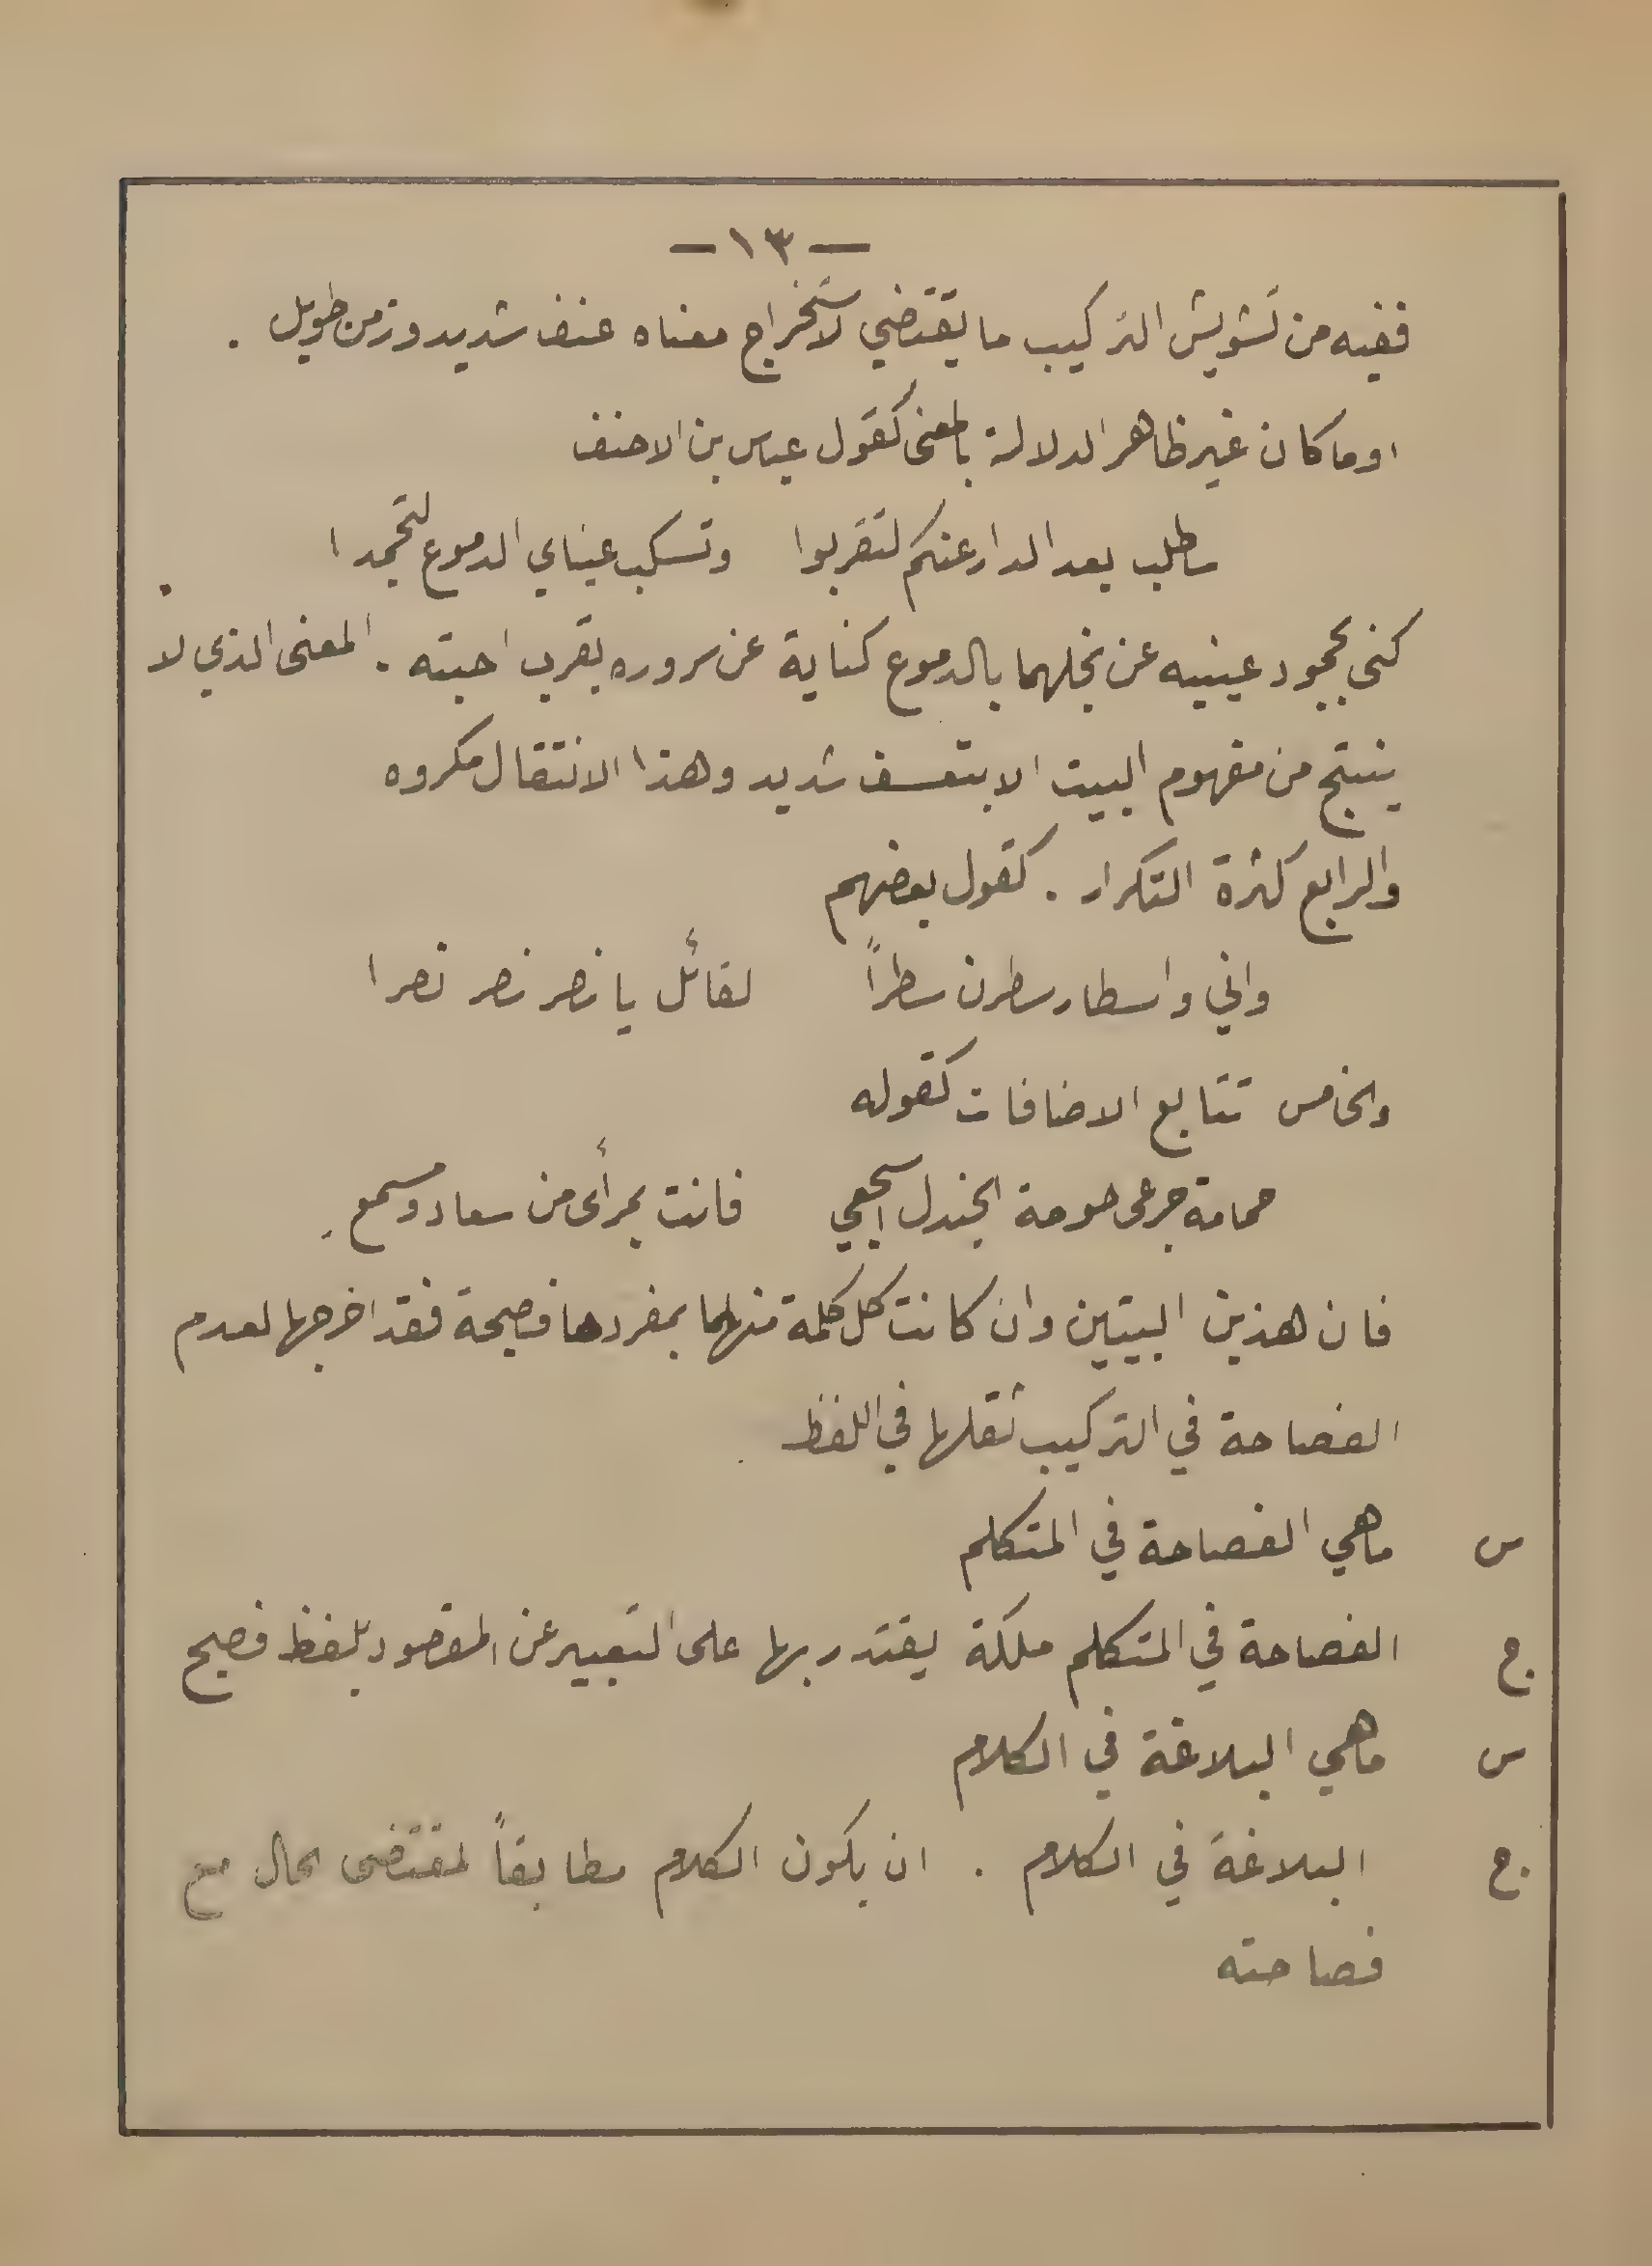 — ١٣ —
ففيه من تشويش التركيب ما يقتضي لاستخراج معناه عنف شديد وزمن طويل .
او ما كان غير ظاهر الدلالة بالمعنى كقول عباس بن الاحنف
ساطلب بعد الدار عنكم لتقربوا وتسكب عيناي الدموع لتجمدا
كنى بجمود عينيه عن بخلهما بالدموع كناية عن سروره بقرب احبته . المعنى الذي لا
ينتج من مفهوم البيت الا بتعسف شديد وهذا الانتقال مكروه
والرابع كثرة التكرار . كقول بعضهم
واني واسطار سطرن سطراً لقائل يا نصر نصر نصرا
والخامس تتابع الاضافات كقوله
حمامة جرعى حومة الجندل اسجعي فانت بمرأى من سعاد ومسمع .
فان هذين البيتين وان كانت كل كلمة منهما بمفردها فصيحة فقد اخرجها لعدم
الفصاحة في التركيب ثقلها في اللفظ .
س ما هي الفصاحة في المتكلم
ج. الفصاحة في المتكلم ملكة يقتدر بها على التعبير عن المقصود بلفظ فصيح
س ما هي البلاغة في الكلام
ج. البلاغة في الكلام . ان يكون الكلام مطابقاً لمقتضى الحال مع
فصاحته